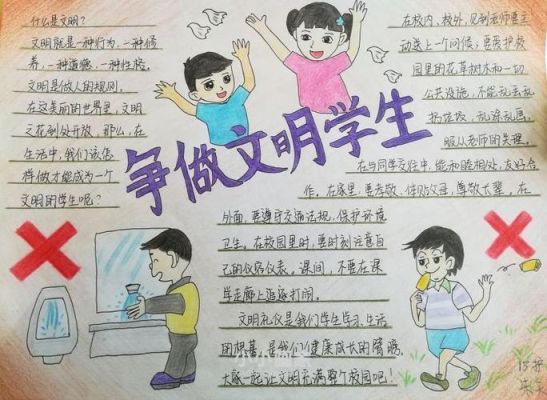 争做文明学生
什么是文明?
文明就是一种行为,一种修
养,一种道德,一种性格,
文明是做人的规则,
在这美丽的世界里,文明
之花到处开放,那么,在
生活中,我们该怎
样做才能成为一个
文明的学生呢?
在校内、校外,见到老师要主
动送上一个问候;要爱护校
园里的花草树木和一切
公共设施,不能乱丢乱
扔垃圾,乱涂乱画,
服从老师的安排。
在与同学交往中,能和睦相处,友好合
作。在家里,要孝敬、体贴父母,尊敬长辈。在
外面,要遵守交通法规,保护环境
卫生。在校园里时,要时刻注意自
己的仪容仪表,课间,不要在课
学走廊上追逐打闹。
文明礼仪是我们学生学习、生活
的根基,是我们健康成长的臂膀。
大家一起让文明充满整个校园吧!